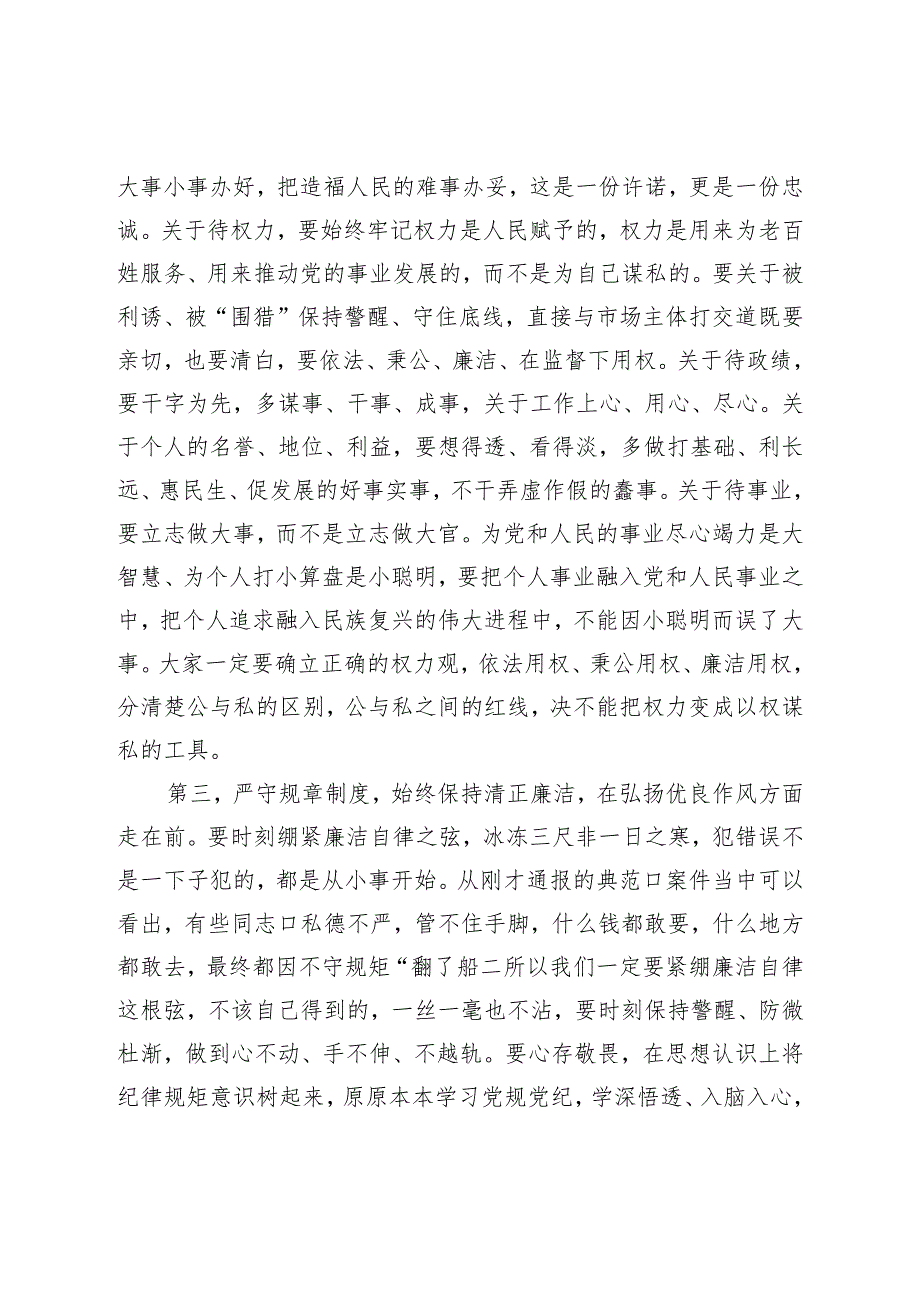 大事小事办好，把造福人民的难事办妥，这是一份许诺，更是一份忠
诚。关于待权力，要始终牢记权力是人民赋予的，权力是用来为老百
姓服务、用来推动党的事业发展的，而不是为自己谋私的。要关于被
利诱、被“围猎”保持警醒、守住底线，直接与市场主体打交道既要
亲切，也要清白，要依法、秉公、廉洁、在监督下用权。关于待政绩，
要干字为先，多谋事、干事、成事，关于工作上心、用心、尽心。关
于个人的名誉、地位、利益，要想得透、看得淡，多做打基础、利长
远、惠民生、促发展的好事实事，不干弄虚作假的蠢事。关于待事业，
要立志做大事，而不是立志做大官。为党和人民的事业尽心竭力是大
智慧、为个人打小算盘是小聪明，要把个人事业融入党和人民事业之
中，把个人追求融入民族复兴的伟大进程中，不能因小聪明而误了大
事。大家一定要确立正确的权力观，依法用权、秉公用权、廉洁用权，
分清楚公与私的区别，公与私之间的红线，决不能把权力变成以权谋
私的工具。
第三，严守规章制度，始终保持清正廉洁，在弘扬优良作风方面
走在前。要时刻绷紧廉洁自律之弦，冰冻三尺非一日之寒，犯错误不
是一下子犯的，都是从小事开始。从刚才通报的典范口案件当中可以
看出，有些同志口私德不严，管不住手脚，什么钱都敢要，什么地方
都敢去，最终都因不守规矩“翻了船二所以我们一定要紧绷廉洁自律
这根弦，不该自己得到的，一丝一毫也不沾，要时刻保持警醒、防微
杜渐，做到心不动、手不伸、不越轨。要心存敬畏，在思想认识上将
纪律规矩意识树起来，原原本本学习党规党纪，学深悟透、入脑入心，